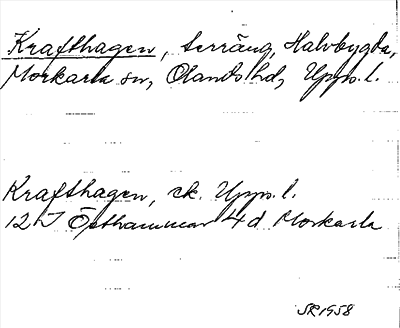 Krafthagen, terräng, Halvbygda,
Morkarla sn, Olands hd, Upps. l.
Krafthagen, ek. Upps. l.
12 I Östhammar 4 d Morkarla
SR 1958